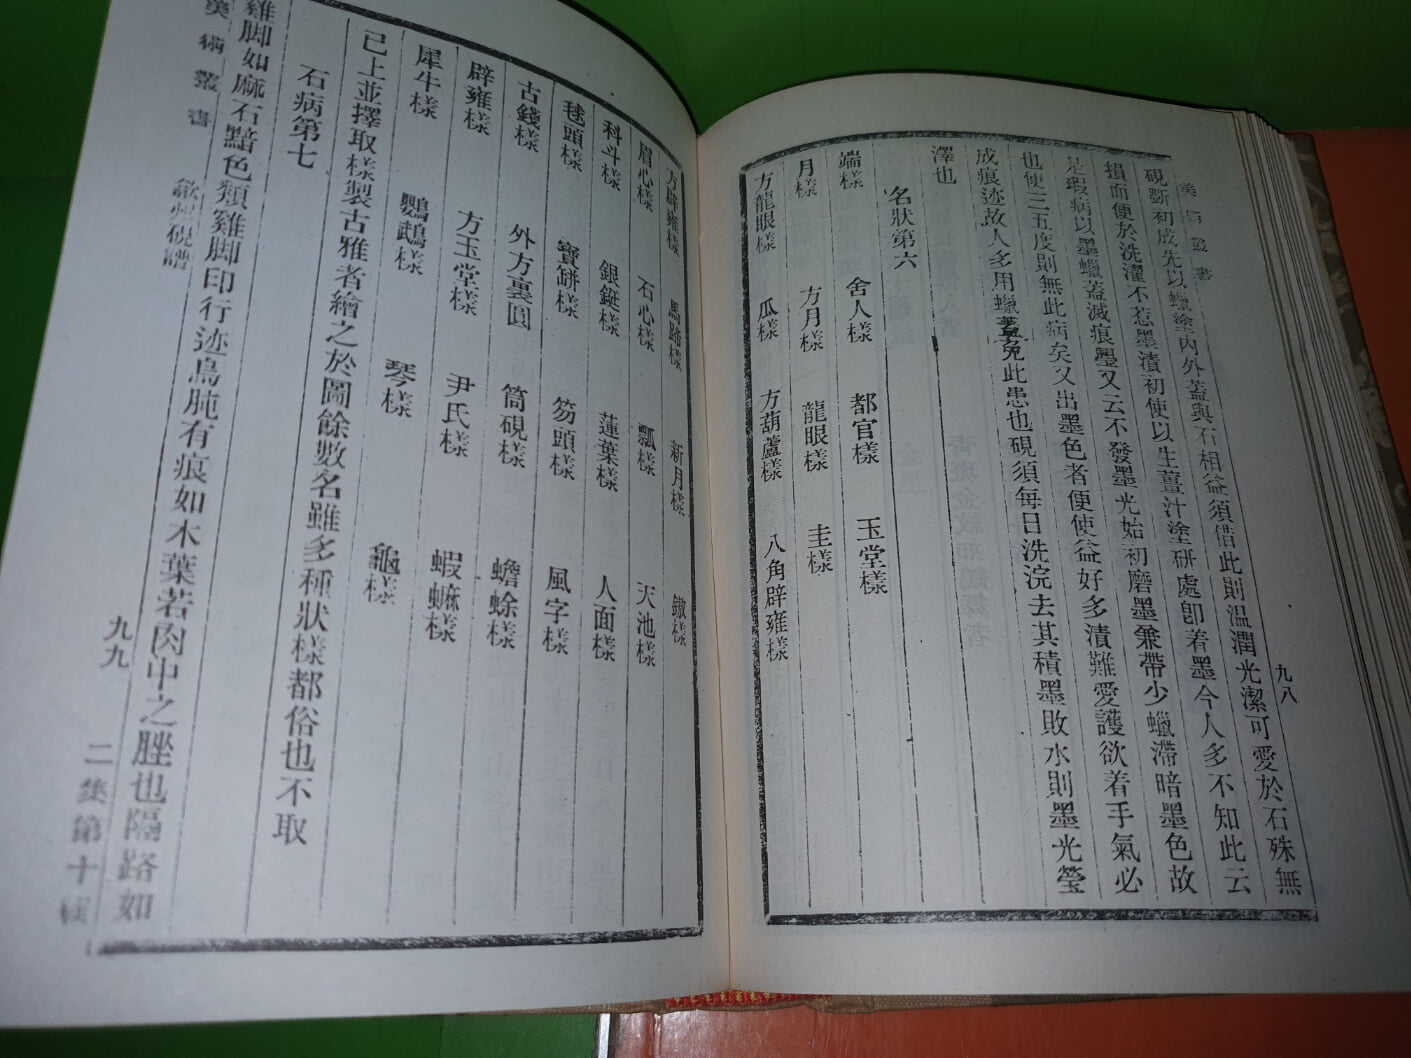 美術叢書
九八
硯斲初成先以蠟塗內外蓋與石相益須借此則溫潤光潔可愛於石殊無
損而便於洗濯不惹墨漬初使以生薑汁塗研處卽着墨今人多不知此云
是瑕病以墨蠟蓋滅痕璺又云不發墨光始初磨墨兼帶少蠟滯暗墨色故
也使三五度則無此病矣又出墨色者便使益好多漬難愛護欲着手氣必
成痕迹故人多用蠟蓋免此患也硯須每日洗浣去其積墨敗水則墨光瑩
澤也
名狀第六
端樣 舍人樣 都官樣 玉堂樣
月樣 方月樣 龍眼樣 圭樣
方龍眼樣 瓜樣 方葫蘆樣 八角辟雍樣
方辟雍樣 馬蹄樣 新月樣 鏉樣
眉心樣 石心樣 瓢樣 天池樣
科斗樣 銀鋌樣 蓮葉樣 人面樣
毬頭樣 寶缾樣 笏頭樣 風字樣
古錢樣 外方裏圓 筒硯樣 蟾蜍樣
辟雍樣 方玉堂樣 尹氏樣 蝦蟆樣
犀牛樣 鸚鵡樣 琴樣 龜樣
已上並擇取樣製古雅者繪之於圖餘數名雖多種狀樣都俗也不取
石病第七
雞脚如麻石黯色類雞脚印行迹鳥肫有痕如木葉若肉中之脞也隔路如
美術叢書
歙州硯譜
九九
二集第十